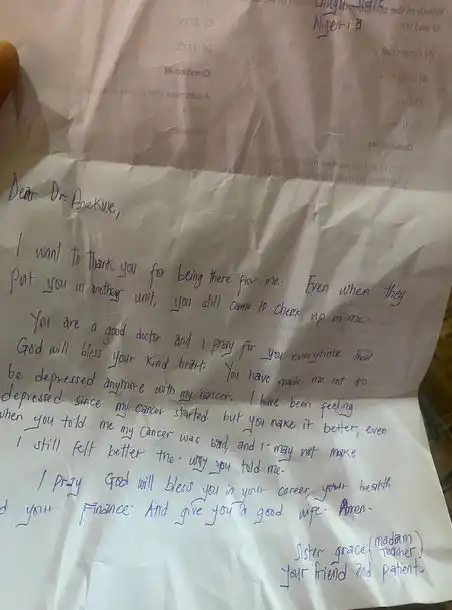 Nigeria
Dear Dr. Anekwe,
I want to thank you for being there for me. Even when they
Put you in another unit, you still came to check up on me.
You are a good doctor and I pray for you everytime that
God will bless your kind heart. You have made me not to
be depressed anymore with my cancer. I have been feeling
depressed since my cancer started but you make it better, even
when you told me my cancer was bad, and I may not make
I still felt better the way you told me.
I pray God will bless you in your career, your health
d your Finance. And give you a good wife. Amen.
Sister grace (madam
Teacher)
Your friend and patient.